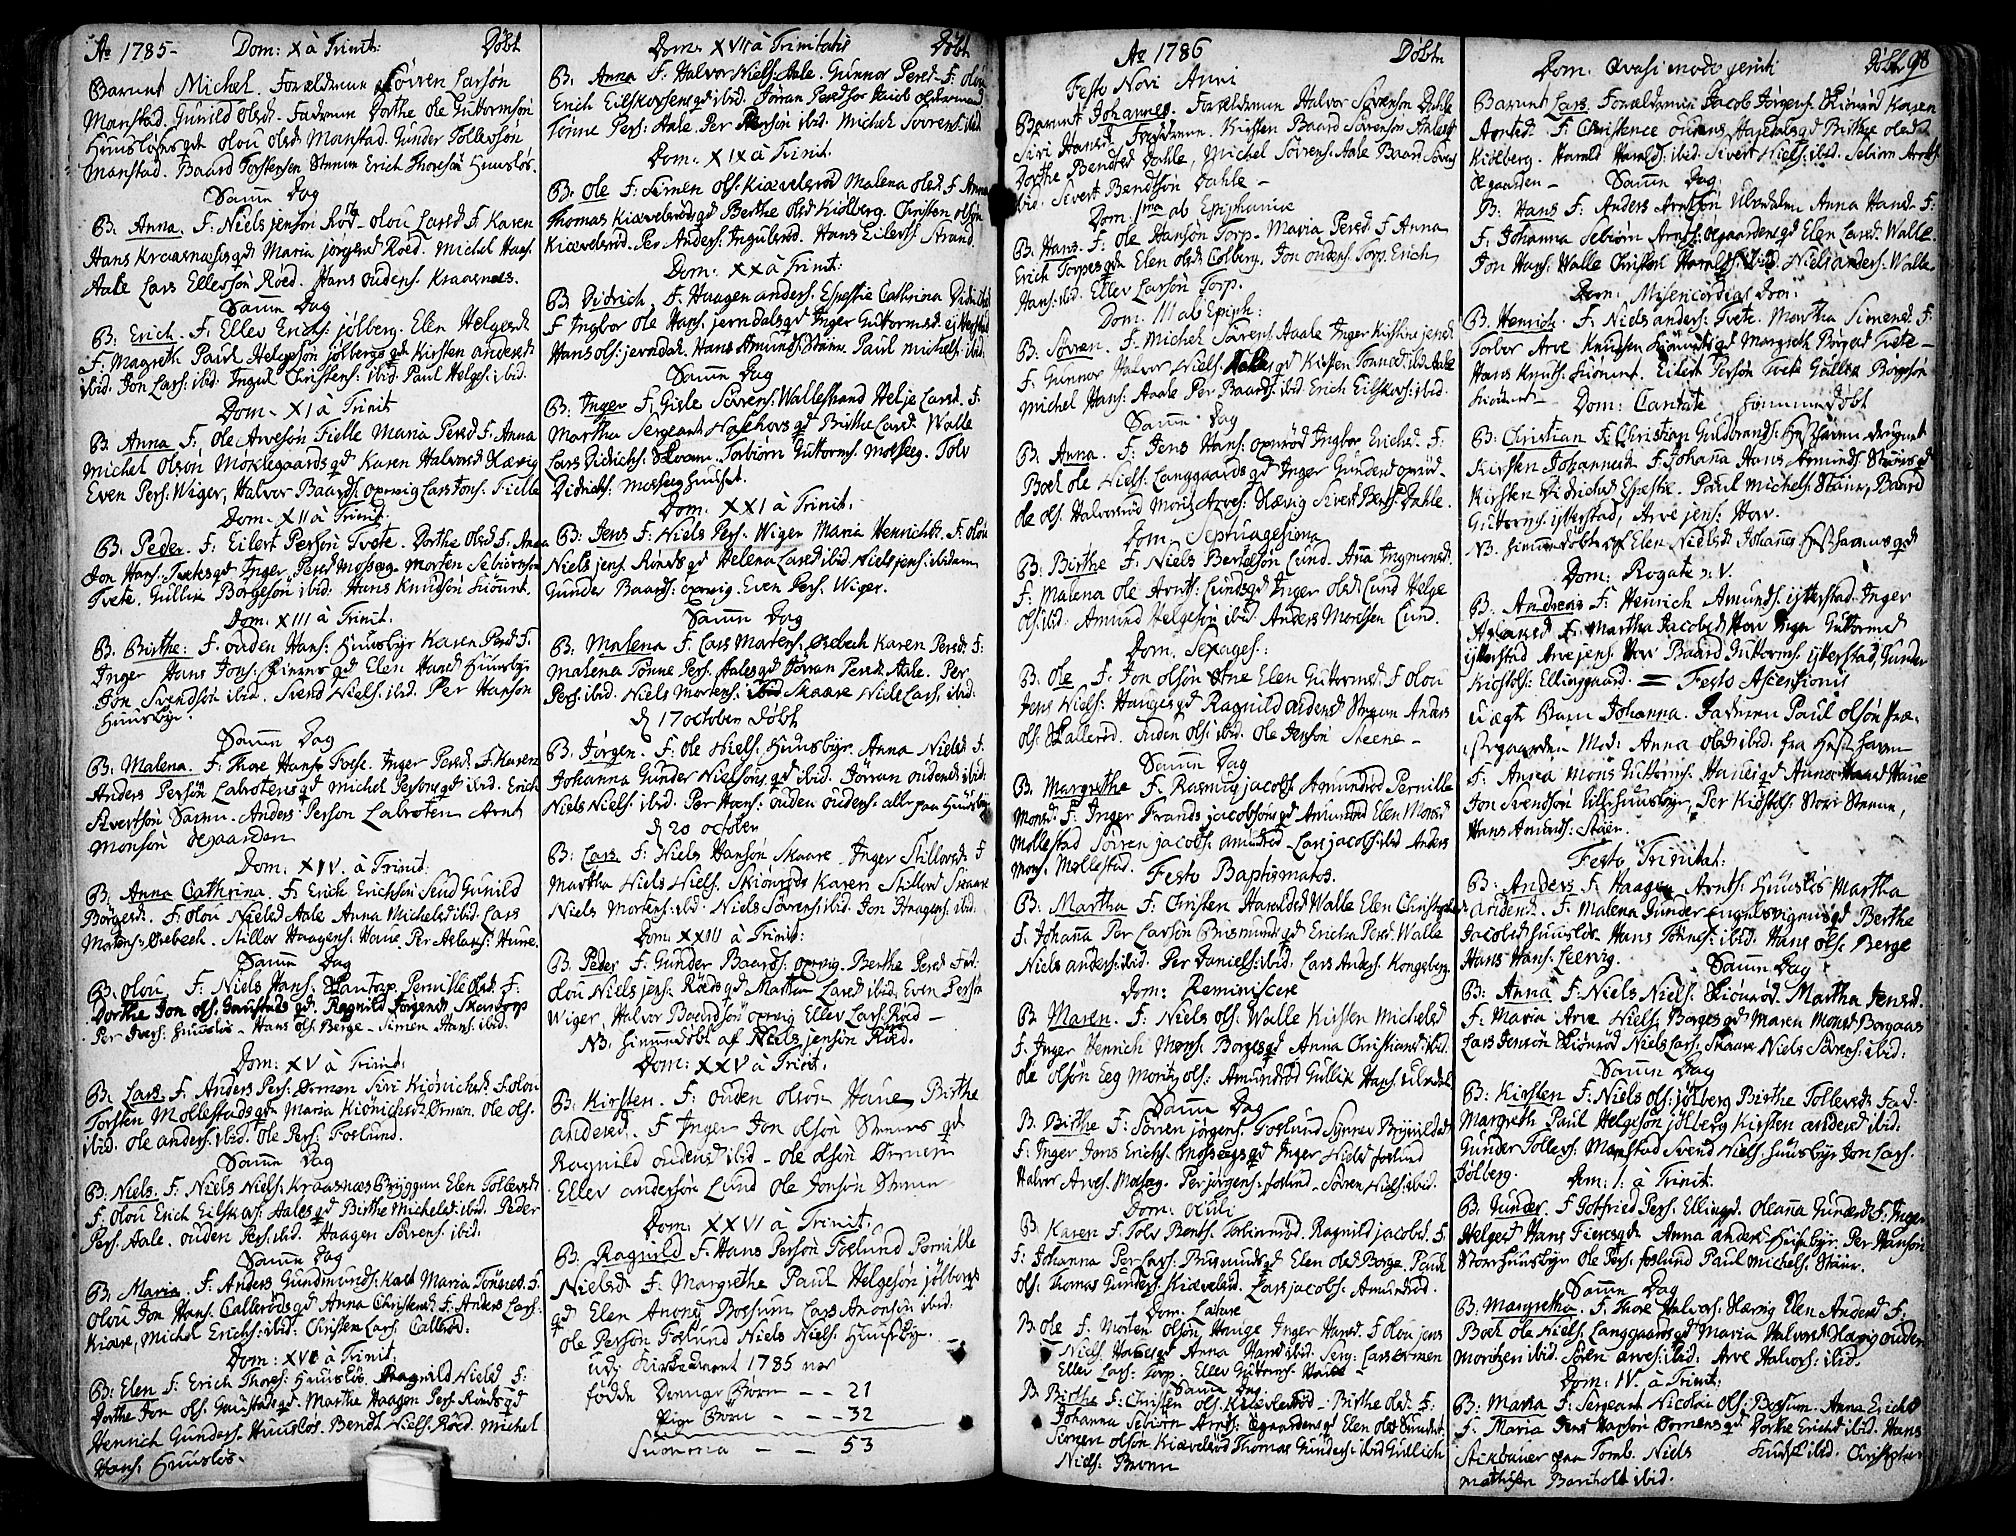 Ao 1785- Dom: X à Trinit: Döbt
Barnet Michel. Forældrene Sövren Larsön
Manstad. Gunild olsd. Fadrene Dorthe ole Guttormsön
Huuslös qd olou olsd Manstad. Gunder Tollefsön
Manstad. Baard Torstensen Stenne Erich Thoresön Huuslös.
Samme Dag
B: Anna. F. Niels jensön Röd olou Larsd F Karen
Hans Kraarnæs qd Maria jörgensd Roed. Michel Hans.
Aale Lars Ellefsön Röed. Hans oudens. Kraarnæs.
Samme Dag
B: Erich. F. Ellev Erichs: jölberg. Elen Helgesd
F. Magreth Paul Helgesön jölbergs qd Kirsten andersd
ibid. Jon Lars: ibid. Ingul Christens: ibid. Paul Helges: ibid.
Dom. XI à Trinit
B. Anna F. ole Arvesön Fielle Maria Persd F. Anna
Michel olsön Möklegaards qd Karen Halvorsd Hævig
Even Pers. Wiger, Halvor Baards: oprvig Lars Jons: Fielle
Dom. XII à Trinit
B: Peder. F: Eilert Persön Tvete. Dorthe olsd F. Anna
Jon Hans: Tvetes qd Inger Persd Mosseeg. morten Sebiörnsön
Tvete. Gullik Borgesön ibid: Hans Knudsön
Dom: XIII à Trinit:
B. Birthe: F. ouden Hans: Huusbyr Karen Persd F.
Inger Hans Jons: qd Elen Hansd Huusbyr
Jon Svendsön ibid. Svend Niels: ibid. Per Hansön
Huusbyr.
Samme Dag
B. Malena. F. Thore Hans: Inger Persd. F. Karen
Anders Persön Labrotens qd michel Persons qd ibid. Erich
Sivertsön Anders Person Labroten Arnt
Monsön ØEgaarden
Dom: XIV. à Trinit:
B. Anna Cathrina. F Erich Erichsön Gunild
Börgesd. F. olou Nielsd Aale Anna Michelsd ibid. Lars
Mortens: Ørebech. Stillov Haagens. Haue. Per Aslags: Hune.
Samme Dag
B. olou F. Niels Hans: Skantorp. Pernille olsd. F:
Dorthe Jon ols. Gaustads qd. Ragnild Jörgensd Skantorp
Per Ivers: Huuslös - Hans ols. Berge - Simen Hans: ibid.
Dom: XV à Trinit:
B. Lars. F. Anders Pers: Ørmen Siri Kiönichsd. F. olou
Torsten Mollestads qd Maria Kiönichsd Ørmen. ole ols.
ibid. ole anders: ibid. ole Pers: Foslund.
Samme Dag
B. Niels. F: Niels Niels. Kraarnæs Elen Tollevsd
F. olou Erich Eilskas: Aales qd Birthe Michelsd ibid. Peder
Pers: Aale. ouden Pers: ibid. Haagen Sörrens. ibid.
Samme Dag
B: Maria. F. Anders Gundmunds: Maria Tönnesd. F
olou Jon Hans: Callerøds qd Anna Christensd F. Anders Lars.
Kiære, Michel Erichs: ibid. Christen Lars: Callerød.
Dom: XVI à Trinit.
B: Elen F: Erich Thores: Huuslös. Ragnild Nielsd F:
Dorthe Jon ols. Gaustads qd. Marthe Haagen Pers. Rönds qd
Henrich Gunders. Huuslös Bendt Niels. Röed. Michel
Hans. Huuslös.
Dom: XVII à Trinitatis Döbt
B: Anna F: Halvor Niels: Aale. Gunnor Persd. F. olou
Erich Eilskarsens qd ibid. Jöran Persdtor Jacob
Tonne Pers: Aale. Per Persön ibid. Michel Sörrens: ibid
Dom: XIX à Trinit.
B. ole F: Simen ols: Kiævelsröd Malena olsd F. Anna
Thomas Kiævelsröds qd Berthe olsd Kiölberg. Christen olsön
Kiævelsröd. Per Anders: Ingulsröd. Hans Eilers: Strand
Dom: XX à Trinit:
B: Didrich. F. Haagen anders. Espestie Cathrina Didrichsd
F Ingbor ole Hans: jerndals qd Inger Guttormsd
Hans ols: jerndal. Hans Amunds: Stenne. Paul michels: ibid.
Samme Dag
B: Inger F. Gisle Sövrens: Wallestrand Helje Larsd. F:
Martha Sergeant qd Birthe Larsd. Walle
Lars Didrichs: Torbiörn Guttorms. Mosseeg. Tolv
Didrichs: Mosseeg Huuset.
Dom: XXI à Trinit:
B: Jens F: Niels Pers. Wiger Maria Henrichsd. F. olou
Niels jens: Rönds qd Helena Larsd ibid. Niels jens: ibidem
Gunder Baards: oprvig. Even Pers. Wiger.
Samme Dag
B. Malena F. Lars Mortens. Ørebech Karen Persd. F:
malena Tonne Pers. Aales qd Jörran Persd Aale. Per
Pers: ibid. Niels Mortens: Skaare Niels Lars: ibid.
d 17 october Döbt
B: Jörgen. F. ole Niels: Huusbyr. Anna Nielsd F.
Johanna Gunder Nielsöns qd ibid. Jöran oudensd ibid.
Niels Niels: ibid. Per Hans: ouden oudens. alle paa Huusbyr
d 20 october
B: Lars. F: Niels Hansön Skaare. Inger Stillovsd: F
Martha Niels Niels. Skiönröds Karen Stillovsd Skaare
Niels Mortens: ibid. Niels Sörrens: ibid. Jon Haagens. ibid.
Dom: XXIII à Trinit:
B. Peder F: Gunder Baards: oprvig. Berthe Persd Fad:
olou Niels jens: Röeds qd Martha Larsd ibid. Even Persön
Wiger, Halvor Baardsön oprvig Ellev Lars: Röed -
NB. himmedöbt af Niels jensön Röed.
Dom: XXV à Trinit.
B: Kirsten. F: ouden olsön Haue, Birthe
andersd. F Inger Jon olsön Stenes qd
Ragnild oudensd ibid - ole olsön Ørmen
Ellev andersön Lund ole Jonsön Stenne
Dom: XXVI à Trinit:
B: Ragnild F. Hans Persön Foslund Pernille
Nielsd F: Margrethe Paul Helgesön jölbergs
qd Elen Anons Bossum Lars Anonsön ibid.
ole Persön Foslund Niels Niels: Huusbyr.
udj Kirkeaaret 1785 var
fødde Drenge Börn - - 21
Pige Börn - - - 32
Summa - - 53
Ao 1786 Döbte
Festo Novi Anni
Barnet Johannes. Forældrene Halvor Sörensön Dahle
Siri Hansd. Faddrene. Kirsten Baard Sörensön Aales qd
Dorthe Bendtsd Dahle, Michel Sörrens: Aale Baard Sövrens
ibid. Sivert Bendtsön Dahle -
Dom: 1ma ab Epiphaniæ
B: Hans. F: ole Hansön Torp. Maria Persd F Anna
Erich Torpes qd Elen olsd Colberg. Jon oudens: Torp. Erich
Hans: ibid. Ellev Larsön Torp.
Dom: III ab Epiph:
B: Sövren. F. Michel Sövrens: Aaale Inger Kirstina jensd
F. Gunnor Halvor Niels. Aales qd Kirsten Tönnesd ibid Aale
Michel Hans: Aale Per Baards: ibid Erich Eilskars: ibid.
Samme Dag
B: Anna. F. Jens Hans: opnröd Ingbor Erichsd. F:
Boel ole Niels: Langgaards qd Inger Gundersd opröd-
ole ols: Halvorsröd Moritz Arves: Hævig Sivert Bents: Dahle.
Dom Septuagesima
B: Birthe F. Niels Bertelsön Lund. Anna Ingmonsd.
F: Malena ole Arnts: Lunds qd Inger olsd: Lund Helge
ols: ibid. Amund Helgesön ibid. Anders Mortsen Lund.
Dom. Sexages:
B. ole F. Jon olsön Stne Elen Guttormsd F olou
Jens Niels: Hauges qd Ragnild oudensd Stenne Anders
ols: Skalleröd. Ouden ols: ibid. ole Jensön Steene -
Samme Dag
B: Margrethe F. Rasmus jacobs. Aamundröd Pernille
Monsd. F. Inger Frands jacobsöns qd Amundröd Elen Monsd
Mollestad Sörren jacobs. amundröd - Lars jacobs: ibid Anders
Mons. Mollestad. Festo Baptismatos.
B: Martha F: Christen Haralds: Walle Elen Christensd
F. Johanna Per Larsön Brismunds qd Ericha Persd Walle
Niels anders: ibid. Per Daniels: ibid. Lars Anders. Kongsberg
Dom: Reminiscere
B. Maren. F: Niels ols: Walle Kirsten Michelsd
F. Inger Henrich Mons: Borges qd Anna Christiansd ibid
ole olsön Eeg Moritz ols: Amundröd Gullik Hans: Ulvedal
Samme Dag
B. Birthe F: Sörren jörgens: Foslund Synnev
F: Inger Jens Erichs. Mosseegs qd Inger Nielsd foslund
Halvor Arves. Mosseg. Per jörgens: foslund - Sörren Niels: ibid.
Dom: oculi
B. Karen F: Tolv Bents. Torbiornröd. Ragnild jacobs. F.
F: Johanna Per Lars: Brismunds qd Elen olsd Borge. Paul
ols: Thomas Gunders. Kiæveland. Lars jacobs: Amundröd.
Dom: Lætare
B. ole F. Morten olsön Hauge Inger Hansd F olou jens
Niels: Hauges qd Anna Hansd ibid. Serg: Lars Ørmen
Ellev Lars: Torp. Ellev Guttorms: Haue -
Samme Dag
B: Birthe F: Christen ols: Kiævelsröd - Birthe olsd: F:
Johanna Sebiörn Arnts: Øgaardens qd Elen olsd Sundet.
Simen olsön Kiævelsröd Thomas Gunders: ibid Gullich
Niels: Brenn
Dom: Qvasi modo geniti Döbte 98
Barnet Lars. Forældrene Jacob Jörgens: Skiönröd Karen
Arntsd. F: Christence oudens Hasdals qd Birthe olsd
Kiölberg. Harald Haralds: ibid. Sivert Niels: ibid. Sebiörn Arnts.
Ægaarden - Samme Dag
B: Hans F: Anders Arntsön Ulvedalen Anna Hansd F:
F. Johanna Sebiörn Arnts: Ægaardens qd Elen Larsd. Walle.
Jon Hans: Walle Christen Haralds. ibid Niels anders: Walle
Dom: Misericordias Dom:
B: Henrich. F: Niels anders: Tvete. Martha Simensd F:
Torbor Arve Knudsen qd Margreth Börgesd Tvete -
Hans Knuts: Eilert Persön Tvete Gullik Börgesön
Dom: Cantate himmedöbt
B: Christian F. Christian Guldbrands:
Kirsten Johannesd F. Johanna Hans Amunds: Stenes qd
Kirsten Didrichsd Espestie. Paul Michels: Stenne, Baard
Guttorms: ytterstad, Arve jens: Hov.
NB. himmedöbt af Elen Nielsd Johannes qd
Dom: Rogate D: V.
B: Andreas F: Henrich Amunds: ytterstad. Inger
Aslaksd F. Martha Jacobsd Hov Inger Guttormsd
ytterstad Arve jens: Hov Baard Guttorms: ytterstad, Gunder
Kiöstols: Ellinggaard. = Festo Ascensionis
Uægte Barn Johanna. Faderen Paul olsön Præ-
stegaarden Mod: Anna olsd ibid. fra
F. Mons Guttorms: Haues qd Anna Haue
Jon Svendsön lille Huusbyr, Per Kiöstels: Store Stenne,
Hans Amunds: Stöer.
Festo Trinitat:
B: Anders F: Haagen Arnts: Huuslös Martha
Andersd. F. Malena Gunder Engelsvigens qd Berthe
Jacobsd Huuslös. Hans Tönnes: ibid. Hans ols. Berge
Hans Hans: Leervig. Samme Dag
B: Anna F: Niels Niels. Skiönröd. Martha Jensd.
F. Maria Arve Niels. Borges qd Maren Monsd Borgaas
Lars Jensön Skiönröd Niels Lars: Skaare Niels Sörrens: ibid:
Samme Dag
B: Kirsten F: Niels ols: jölberg Birthe Tollevsd: Fad.
Margreth Paul Helgesön jölberg Kirsten andersd ibid:
Gunder Tollevs: Manstad Svend Niels. Huusbyr Jon Lars.
Jölberg. Dom: I: à Trinit.
B: Gunder F: Gotfried Pers. Ellingrd. oleana Gundersd F: Inger
Helgesd Hans Fieres qd Anna andersd Huusbyr. Per Hansön
Store Huusbyr ole Pers: foslund Paul Michels: Stänr.
Samme Dag
B: Margretha. F. Thore Halvors: Hærvig Elen Andersd F.
Boel ole Niels. Langgaards qd Maria Halvorsd Hævig ouden
moritzen ibid. Sören arves: ibid: Arve Halvors: ibid.
Dom: IV. à Trinit:
B: Maria F: Sergeant Nicolai ols: Bossum. Anna Erichsd
F. Maria Jens Hansön Ørmens qd Dorthe Erichsd ibid. Hans
Stachauer paa Tomb. Niels ibid. Christopher
mathisen Banholt ibid.